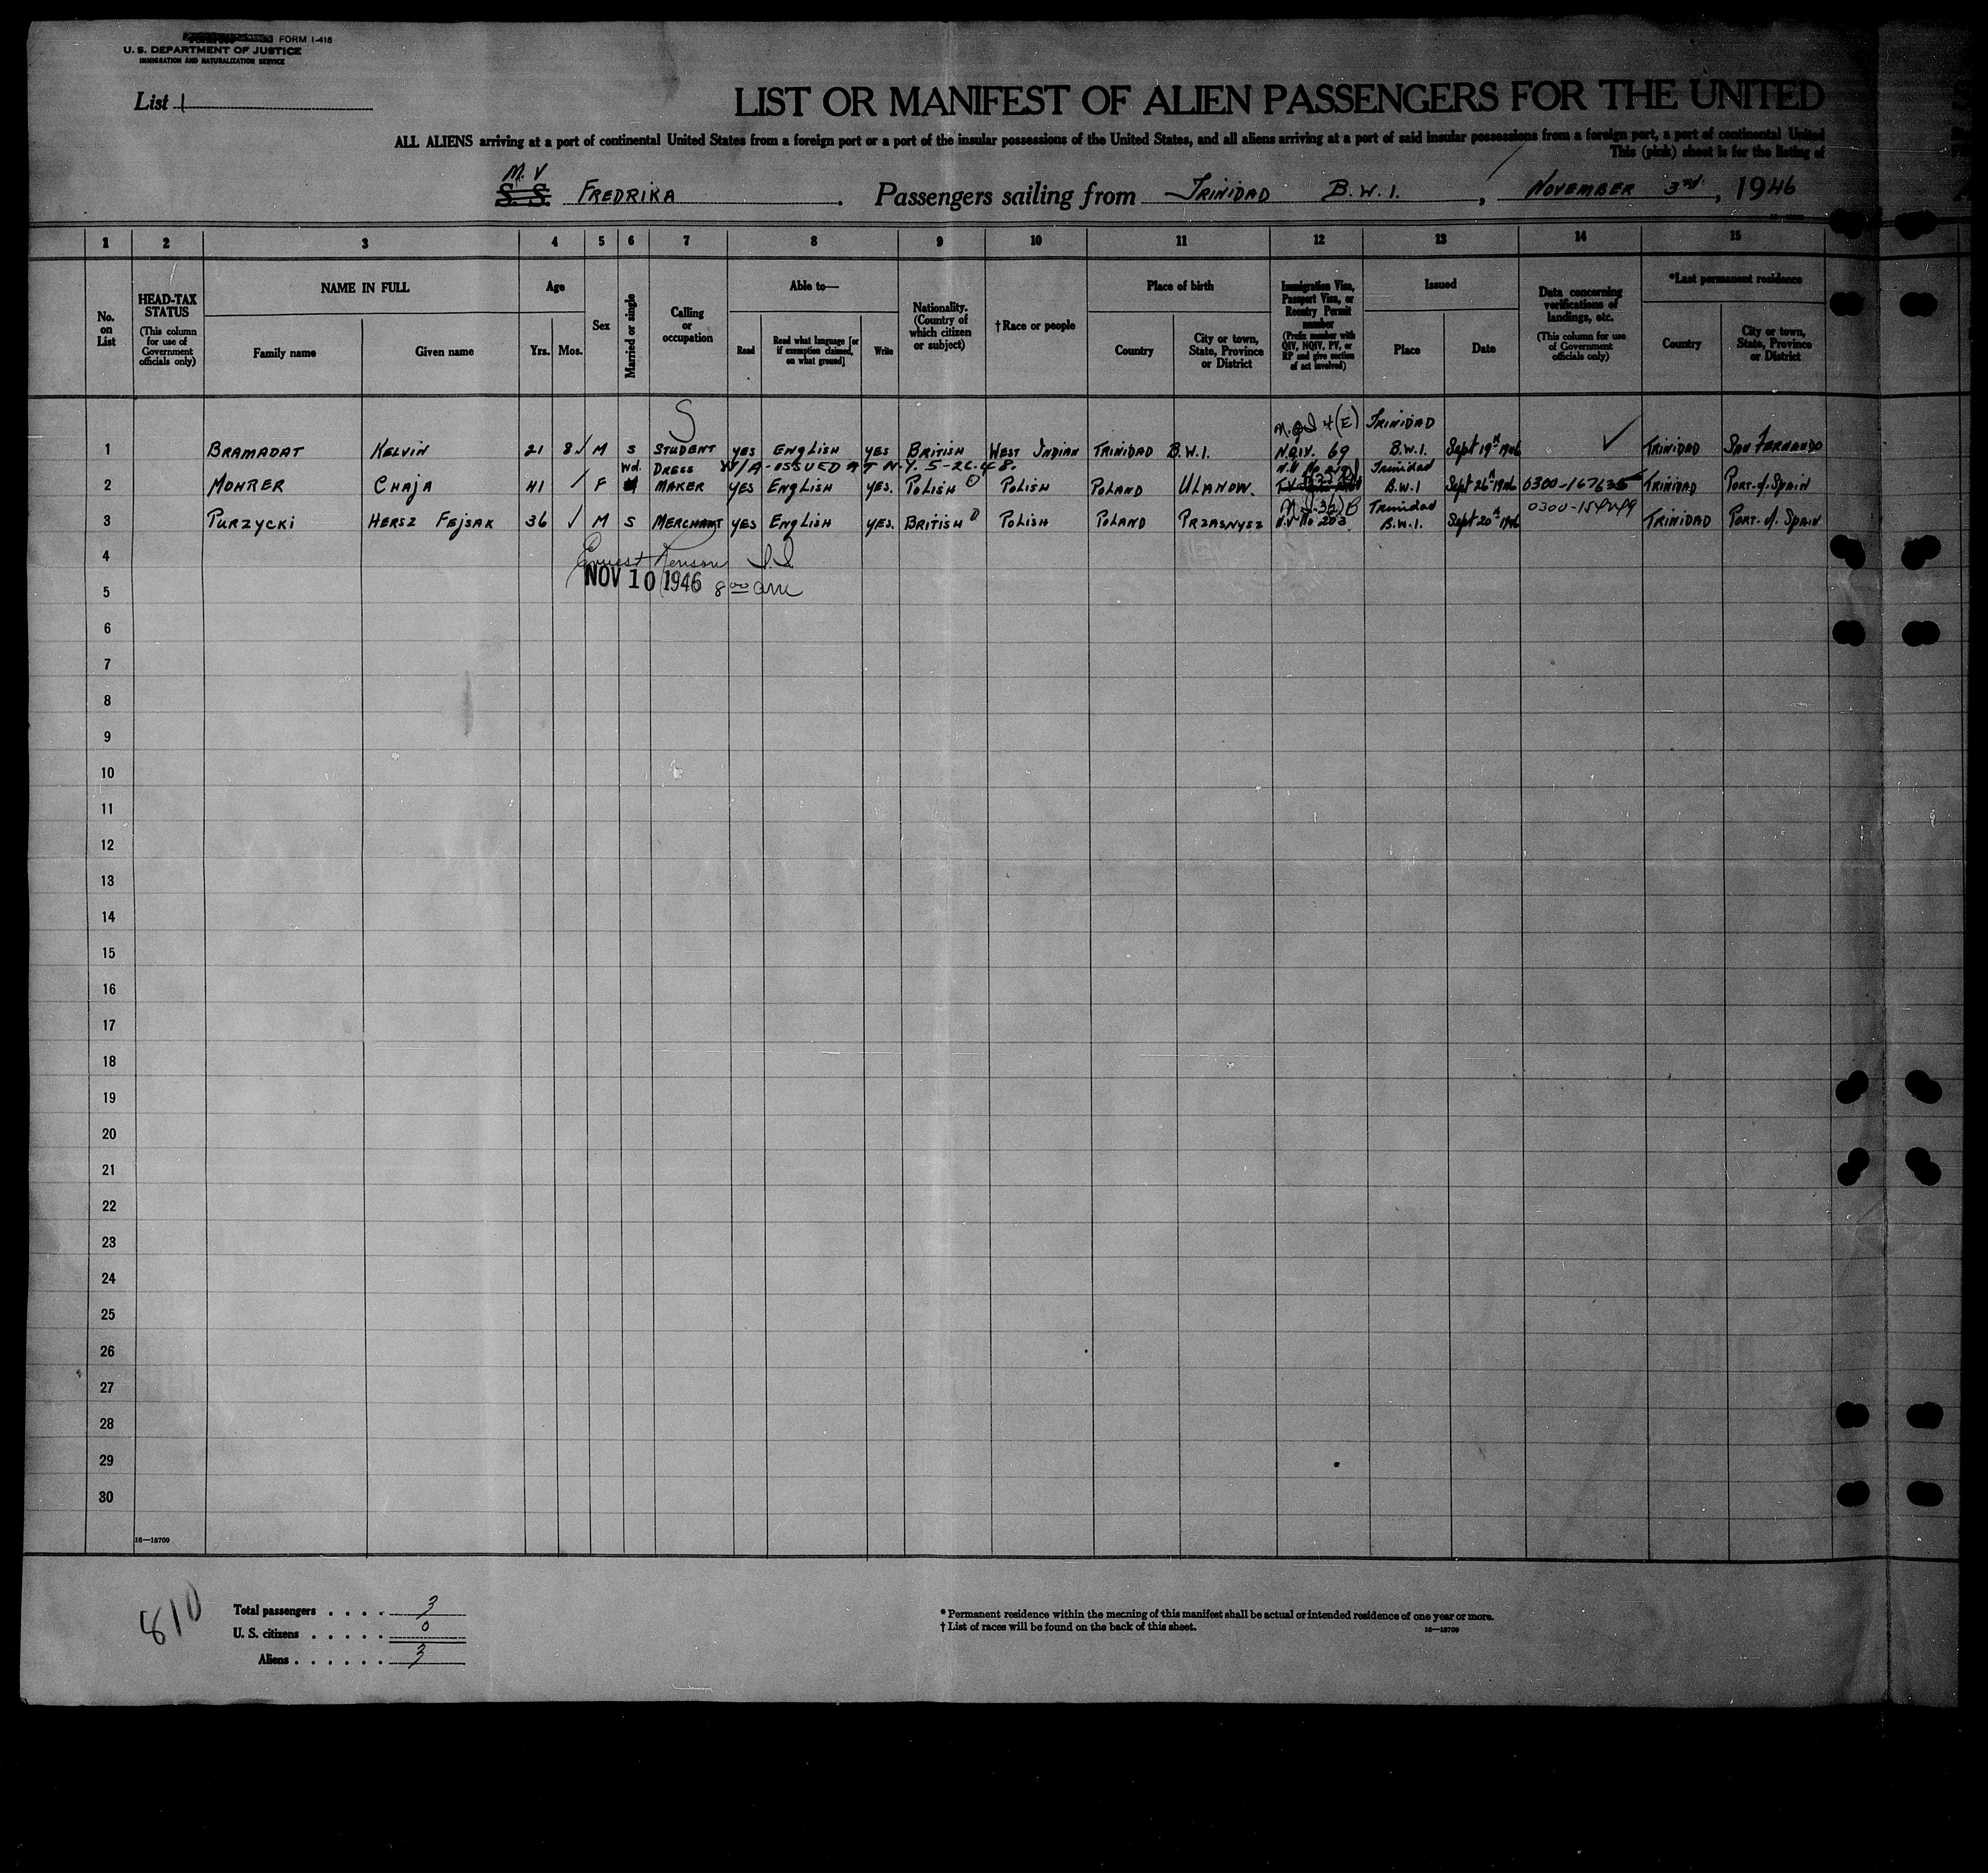 FORM I-416
U. S. DEPARTMENT OF JUSTICE
IMMIGRATION AND NATURALIZATION SERVICE
List 1
LIST OR MANIFEST OF ALIEN PASSENGERS FOR THE UNITED
ALL ALIENS arriving at a port of continental United States from a foreign port or a port of the insular possessions of the United States, and all aliens arriving at a port of said insular possessions from a foreign port, a port of continental United
This (pink) sheet is for the listing of
M. V
S. S. FREDRIKA. Passengers sailing from TRINIDAD B.W.I., NOVEMBER 3rd, 1946
1 2 3 4 5 6 7 8 9 10 11 12 13 14 15
No. on List
HEAD-TAX STATUS (This column for use of Government officials only)
NAME IN FULL
Family name
Given name
Age
Yrs. Mos.
Sex
Married or single
Calling or occupation
Able to—
Read
Read what language [or if exemption claimed, on what ground]
Write
Nationality. (Country of which citizen or subject)
†Race or people
Place of birth
Country
City or town, State, Province or District
Immigration Visa, Passport Visa, or Reentry Permit number (Prefix number with QIV, NQIV, PV, or RP and give section of act involved)
Issued
Place
Date
Data concerning verifications of landings, etc. (This column for use of Government officials only)
*Last permanent residence
Country
City or town, State, Province or District
S 4(E) TRINIDAD
1 BRAMADAT KELVIN 21 8 M S STUDENT YES ENGLISH YES BRITISH WEST INDIAN TRINIDAD B.W.I. NQIV. 69 B.W.I. Sept 19th 1946 TRINIDAD SAN FERNANDO
Wd. DRESS W/A-ISSUED AT N.Y. 5-26-48. Trinidad
2 MOHRER CHAJA 41 F MAKER YES ENGLISH YES. POLISH POLISH POLAND ULANOW. B.W.I Sept 26th 1946 0300-167635 TRINIDAD PORT-of-SPAIN
Trinidad
3 PURZYCKI HERSZ FEJSAK 36 M S MERCHANT YES ENGLISH YES. BRITISH POLISH POLAND PRZASNYSZ B.W.I. Sept 20th 1946 TRINIDAD PORT-of-SPAIN
4
Ernest
NOV 10 1946 8 00 am
5
6
7
8
9
10
11
12
13
14
15
16
17
18
19
20
21
22
23
24
25
26
27
28
29
30
16—18709
810
Total passengers . . . . 3
U. S. citizens . . . . . 0
Aliens . . . . . . 3
* Permanent residence within the meaning of this manifest shall be actual or intended residence of one year or more.
† List of races will be found on the back of this sheet.
16—18709